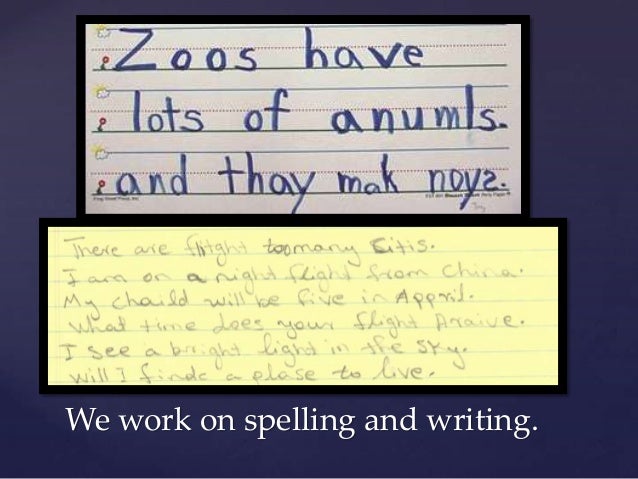 Zoos have
lots of anumls.
and thay mak noyz.
There are flight toomany Sitis.
I am on a night flight from China.
My chaild will be five in Appril.
What time does your flight Araive.
I see a bright light in the sky.
Will I finde a plase to live.
We work on spelling and writing.